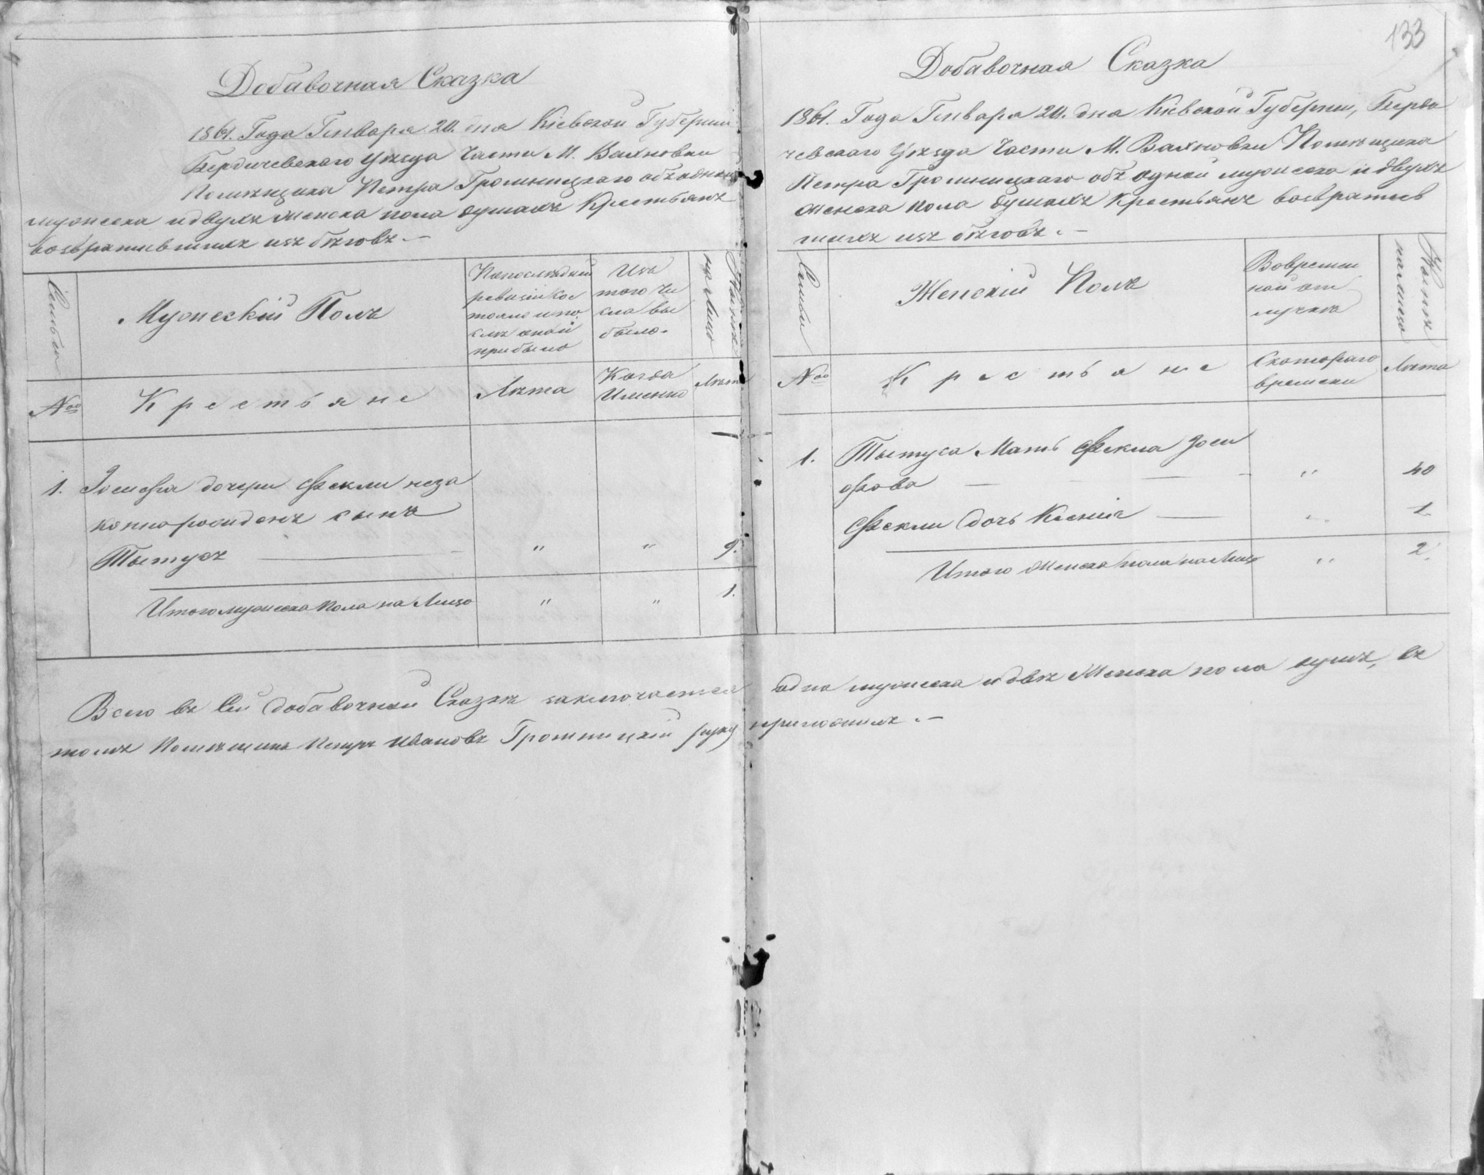 133
Добавочная Сказка
1861. Года Генваря 20. дня Кіевской Губерніи
Бердичевскаго Уѣзда Части М. Вахновки
Помѣщика Петра Громницкаго объ одной
мужеска и двухъ женска пола душахъ крестьянъ
возвратившихъ изъ бѣговъ. —
Семьи
Мужескій Полъ
Напослѣдней
ревизіи Со
стояло и по
слѣ оной
прибыло
Изъ
того Чи
сла вы
было.
Нынѣ
на Лицо
№
Крестьяне
Лѣта
Когда
Именно
Лѣта
1. Іосифа дочери Феклы неза
коннорожденъ сынъ
Тытусъ — " " 9.
Итого мужеска пола на Лицо " " 1.
Добавочная Сказка
1861. Года Генваря 20. дня Кіевской Губерніи, Берди
чевскаго Уѣзда Части М. Вахновки Помѣщика
Петра Громницкаго объ одной мужеска и двухъ
женска пола душахъ крестьянъ возвратив
шихъ изъ бѣговъ. —
Семьи
Женскій Полъ
Вовремен
ной от
лучкѣ
Нынѣ
на лицо
№
Крестьяне
Скотораго
времени
Лѣта
1. Тытуса Мать Фекла Іоси
фова — " 40
Феклы дочь Ксенія — " 1
Итого женска пола на Лицо " 2.
Всего въ Сей добавочной Сказкѣ заключается одна мужеска и двѣ Женска пола душъ, въ
томъ Помѣщикъ Петръ Ивановъ Громницкій руку приложилъ. —